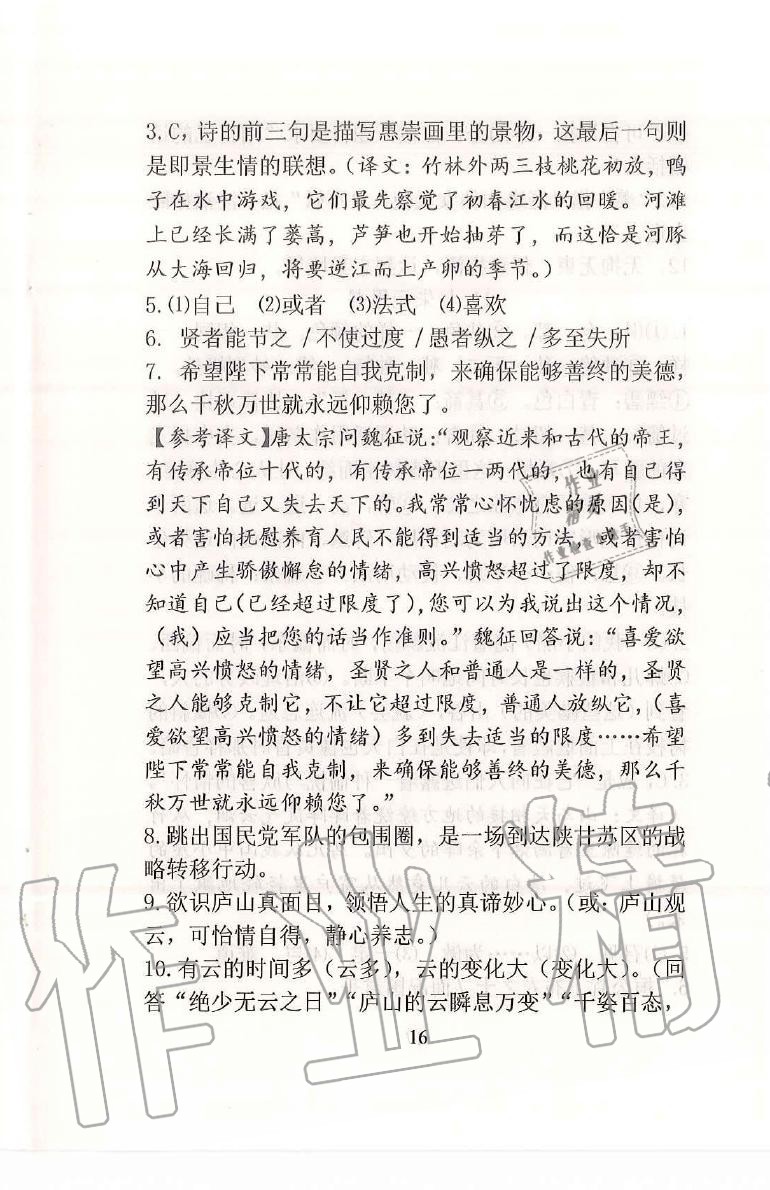 3.C，诗的前三句是描写惠崇画里的景物，这最后一句则
是即景生情的联想。（译文：竹林外两三枝桃花初放，鸭
子在水中游戏，它们最先察觉了初春江水的回暖。河滩
上已经长满了蒌蒿，芦笋也开始抽芽了，而这恰是河豚
从大海回归，将要逆江而上产卵的季节。）
5.⑴自己 ⑵或者 ⑶法式 ⑷喜欢
6. 贤者能节之 /不使过度 /愚者纵之 /多至失所
7. 希望陛下常常能自我克制，来确保能够善终的美德，
那么千秋万世就永远仰赖您了。
【参考译文】唐太宗问魏征说：“观察近来和古代的帝王，
有传承帝位十代的，有传承帝位一两代的，也有自己得
到天下自己又失去天下的。我常常心怀忧虑的原因(是)，
或者害怕抚慰养育人民不能得到适当的方法，或者害怕
心中产生骄傲懈怠的情绪，高兴愤怒超过了限度，却不
知道自己(已经超过限度了)，您可以为我说出这个情况，
（我）应当把您的话当作准则。”魏征回答说：“喜爱欲
望高兴愤怒的情绪，圣贤之人和普通人是一样的，圣贤
之人能够克制它，不让它超过限度，普通人放纵它，（喜
爱欲望高兴愤怒的情绪）多到失去适当的限度……希望
陛下常常能自我克制，来确保能够善终的美德，那么千
秋万世就永远仰赖您了。”
8.跳出国民党军队的包围圈，是一场到达陕甘苏区的战
略转移行动。
9.欲识庐山真面目，领悟人生的真谛妙心。（或：庐山观
云，可怡情自得，静心养志。）
10.有云的时间多（云多），云的变化大（变化大）。（回
答“绝少无云之日”“庐山的云瞬息万变”“千姿百态，
16
作业精